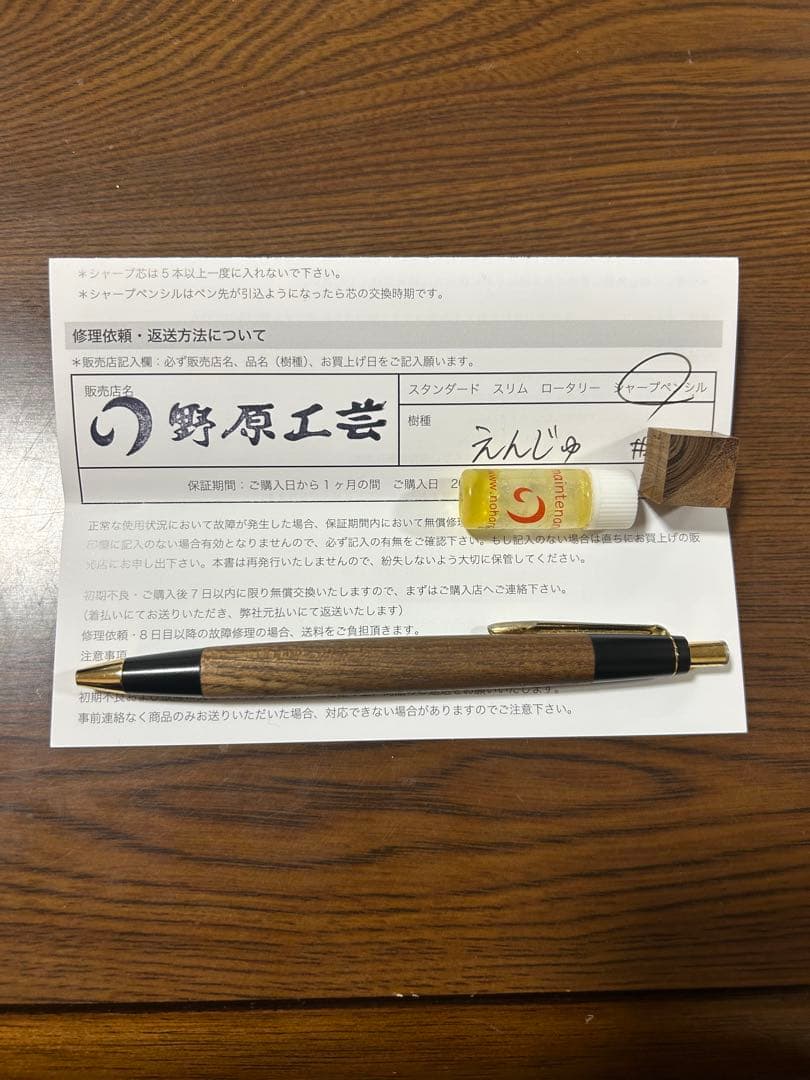 ＊シャープ芯は5本以上一度に入れないで下さい。
＊シャープペンシルはペン先が引込ようになったら芯の交換時期です。
修理依頼・返送方法について
＊販売店記入欄：必ず販売店名、品名（樹種）、お買上げ日をご記入願います。
販売店名
野原工芸
スタンダード スリム ロータリー シャープペンシル
樹種
えんじゅ #
保証期間：ご購入日から1ヶ月の間 ご購入日 20
maintenan
www.nohar
正常な使用状況において故障が発生した場合、保証期間内において無償修
に記入のない場合有効となりませんので、必ず記入の有無をご確認下さい。もし記入のない場合は直ちにお買上げの販
売店にお申し出下さい。本書は再発行いたしませんので、紛失しないよう大切に保管してください。
初期不良・ご購入後7日以内に限り無償交換いたしますので、まずはご購入店へご連絡下さい。
（着払いにてお送りいただき、弊社元払いにて返送いたします）
修理依頼・8日目以降の故障修理の場合、送料をご負担頂きます。
注意事項
初期不良およ
お願いいたします。
事前連絡なく商品のみお送りいただいた場合、対応できない場合がありますのでご注意下さい。